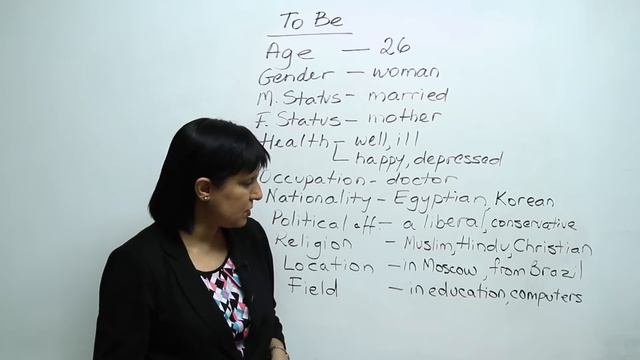 To Be
Age — 26
Gender — woman
M. Status — married
F. Status — mother
Health — well, ill
happy, depressed
Occupation — doctor
Nationality — Egyptian, Korean
Political aff — a liberal, conservative
Religion — Muslim, Hindu, Christian
Location — in Moscow, from Brazil
Field — in education, computers